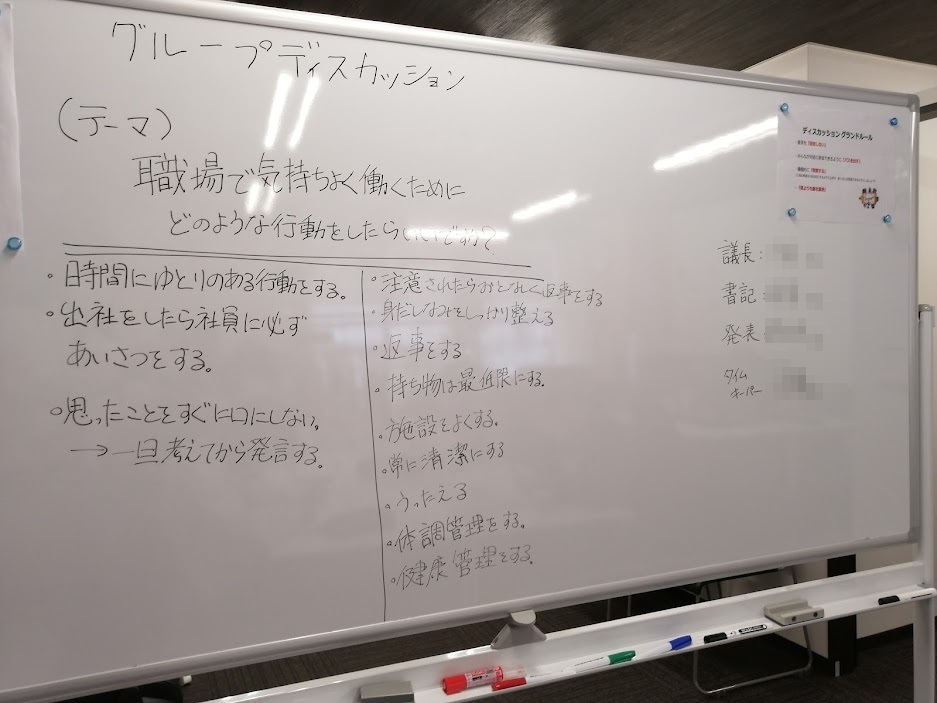 グループディスカッション
(テーマ)
職場で気持ちよく働くために
どのような行動をしたらいいですか?
・日時間にゆとりのある行動をする。
・出社をしたら社員に必ず
あいさつをする。
・思ったことをすぐに口にしない。
→一旦考えてから発言する。
・注意されたらおとなしく返事をする
・身だしなみをしっかり整える
・返事をする
・持ち物は最低限にする。
・施設をよくする。
・常に清潔にする
・うったえる
・体調管理をする。
・健康管理をする。
ディスカッション グランドルール
議長:
書記:
発表:
タイム
キーパー